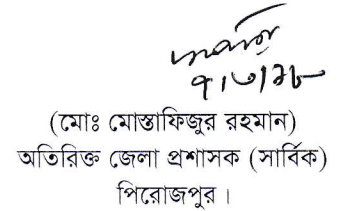 ৭/৩/১৮
(মোঃ মোস্তাফিজুর রহমান)
অতিরিক্ত জেলা প্রশাসক (সার্বিক)
পিরোজপুর।